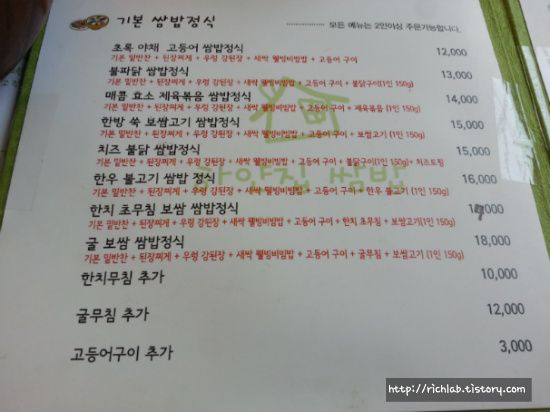 기본 쌈밥정식
모든 메뉴는 2인이상 주문가능합니다.
초록 야채 고등어 쌈밥정식 12,000
기본 밑반찬 + 된장찌게 + 우렁 강된장 + 새싹 웰빙비빔밥 + 고등어 구이
불파닭 쌈밥정식 13,000
기본 밑반찬 + 된장찌게 + 우렁 강된장 + 새싹 웰빙비빔밥 + 고등어 구이 + 불닭구이(1인 150g)
매콤 효소 제육볶음 쌈밥정식 14,000
기본 밑반찬 + 된장찌게 + 우렁 강된장 + 새싹 웰빙비빔밥 + 고등어 구이 + 제육볶음(1인 150g)
한방 쑥 보쌈고기 쌈밥정식 15,000
기본 밑반찬 + 된장찌게 + 우렁 강된장 + 새싹 웰빙비빔밥 + 고등어 구이 + 보쌈고기(1인 150g)
치즈 불닭 쌈밥정식 15,000
기본 밑반찬 + 된장찌게 + 우렁 강된장 + 새싹 웰빙비빔밥 + 고등어 구이 + 불닭구이(1인 150g) + 치즈토핑
한우 불고기 쌈밥 정식 16,000
기본 밑반찬 + 된장찌게 + 우렁 강된장 + 새싹 웰빙비빔밥 + 고등어 구이 + 한우 불고기(1인 150g)
한치 초무침 보쌈 쌈밥정식 17,000
기본 밑반찬 + 된장찌게 + 우렁 강된장 + 새싹 웰빙비빔밥 + 고등어 구이 + 한치 초무침 + 보쌈고기(1인 150g)
굴 보쌈 쌈밥정식 18,000
기본 밑반찬 + 된장찌게 + 우렁 강된장 + 새싹 웰빙비빔밥 + 고등어 구이 + 굴무침 + 보쌈고기(1인 150g)
한치무침 추가 10,000
굴무침 추가 12,000
고등어구이 추가 3,000
http://richlab.tistory.com